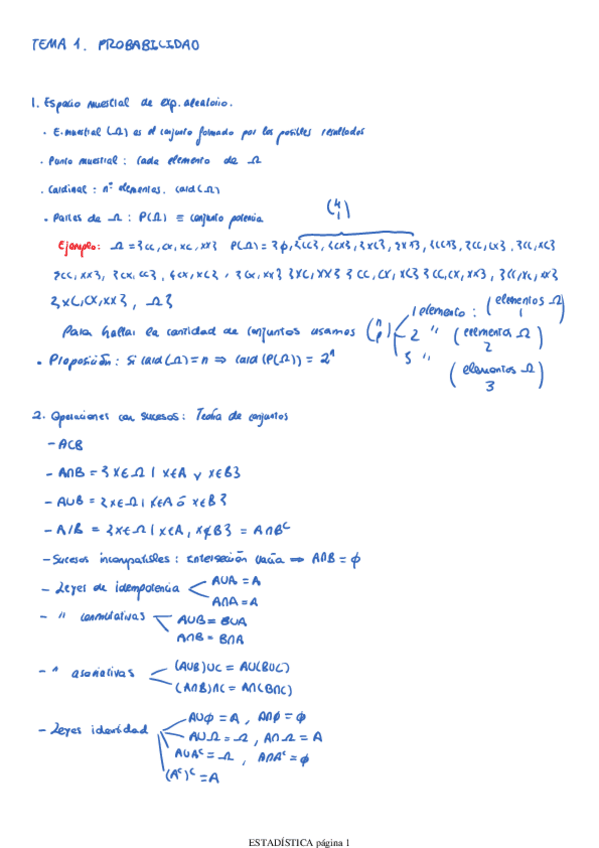 TEMA 1. PROBABILIDAD
1. Espacio muestral de exp. aleatorio.
· E. muestral (Ω) es el conjunto formado por los posibles resultados
· Punto muestral : cada elemento de Ω
· Cardinal : nº elementos. card(Ω)
· Partes de Ω : P(Ω) ≡ conjunto potencia
(4 1)
Ejemplo: Ω = {cc, cx, xc, xx} P(Ω) = {ϕ, {cc}, {cx}, {xc}, {xx},
{cc, xx}, {cx, xc}, {cx, xx} {xc, xx} {cc, cx, xc} {cc, cx, xx},
{xc, cx, xx}, Ω}
Para hallar la cantidad de conjuntos usamos
1 elemento : (elementos Ω 1)
2 " (elementos Ω 2)
3 " (elementos Ω 3)
· Proposición : Si card(Ω) = n ⇒ card(P(Ω)) = 2ⁿ
2. Operaciones con sucesos : Teoría de conjuntos
- A⊂B
- A∩B = {x∈Ω | x∈A y x∈B}
- A∪B = {x∈Ω | x∈A ó x∈B}
- A/B = {x∈Ω | x∈A, x∉B} = A∩Bᶜ
- Sucesos incompatibles : Intersección vacía ⇒ A∩B = ϕ
- Leyes de idempotencia A∪A = A
A∩A = A
- " conmutativas A∪B = B∪A
A∩B = B∩A
- " asociativas (A∪B)∪C = A∪(B∪C)
(A∩B)∩C = A∩(B∩C)
- Leyes identidad A∪ϕ = A , A∩ϕ = ϕ
A∪Ω = Ω , A∩Ω = A
A∪Aᶜ = Ω , A∩Aᶜ = ϕ
(Aᶜ)ᶜ = A
ESTADÍSTICA página 1